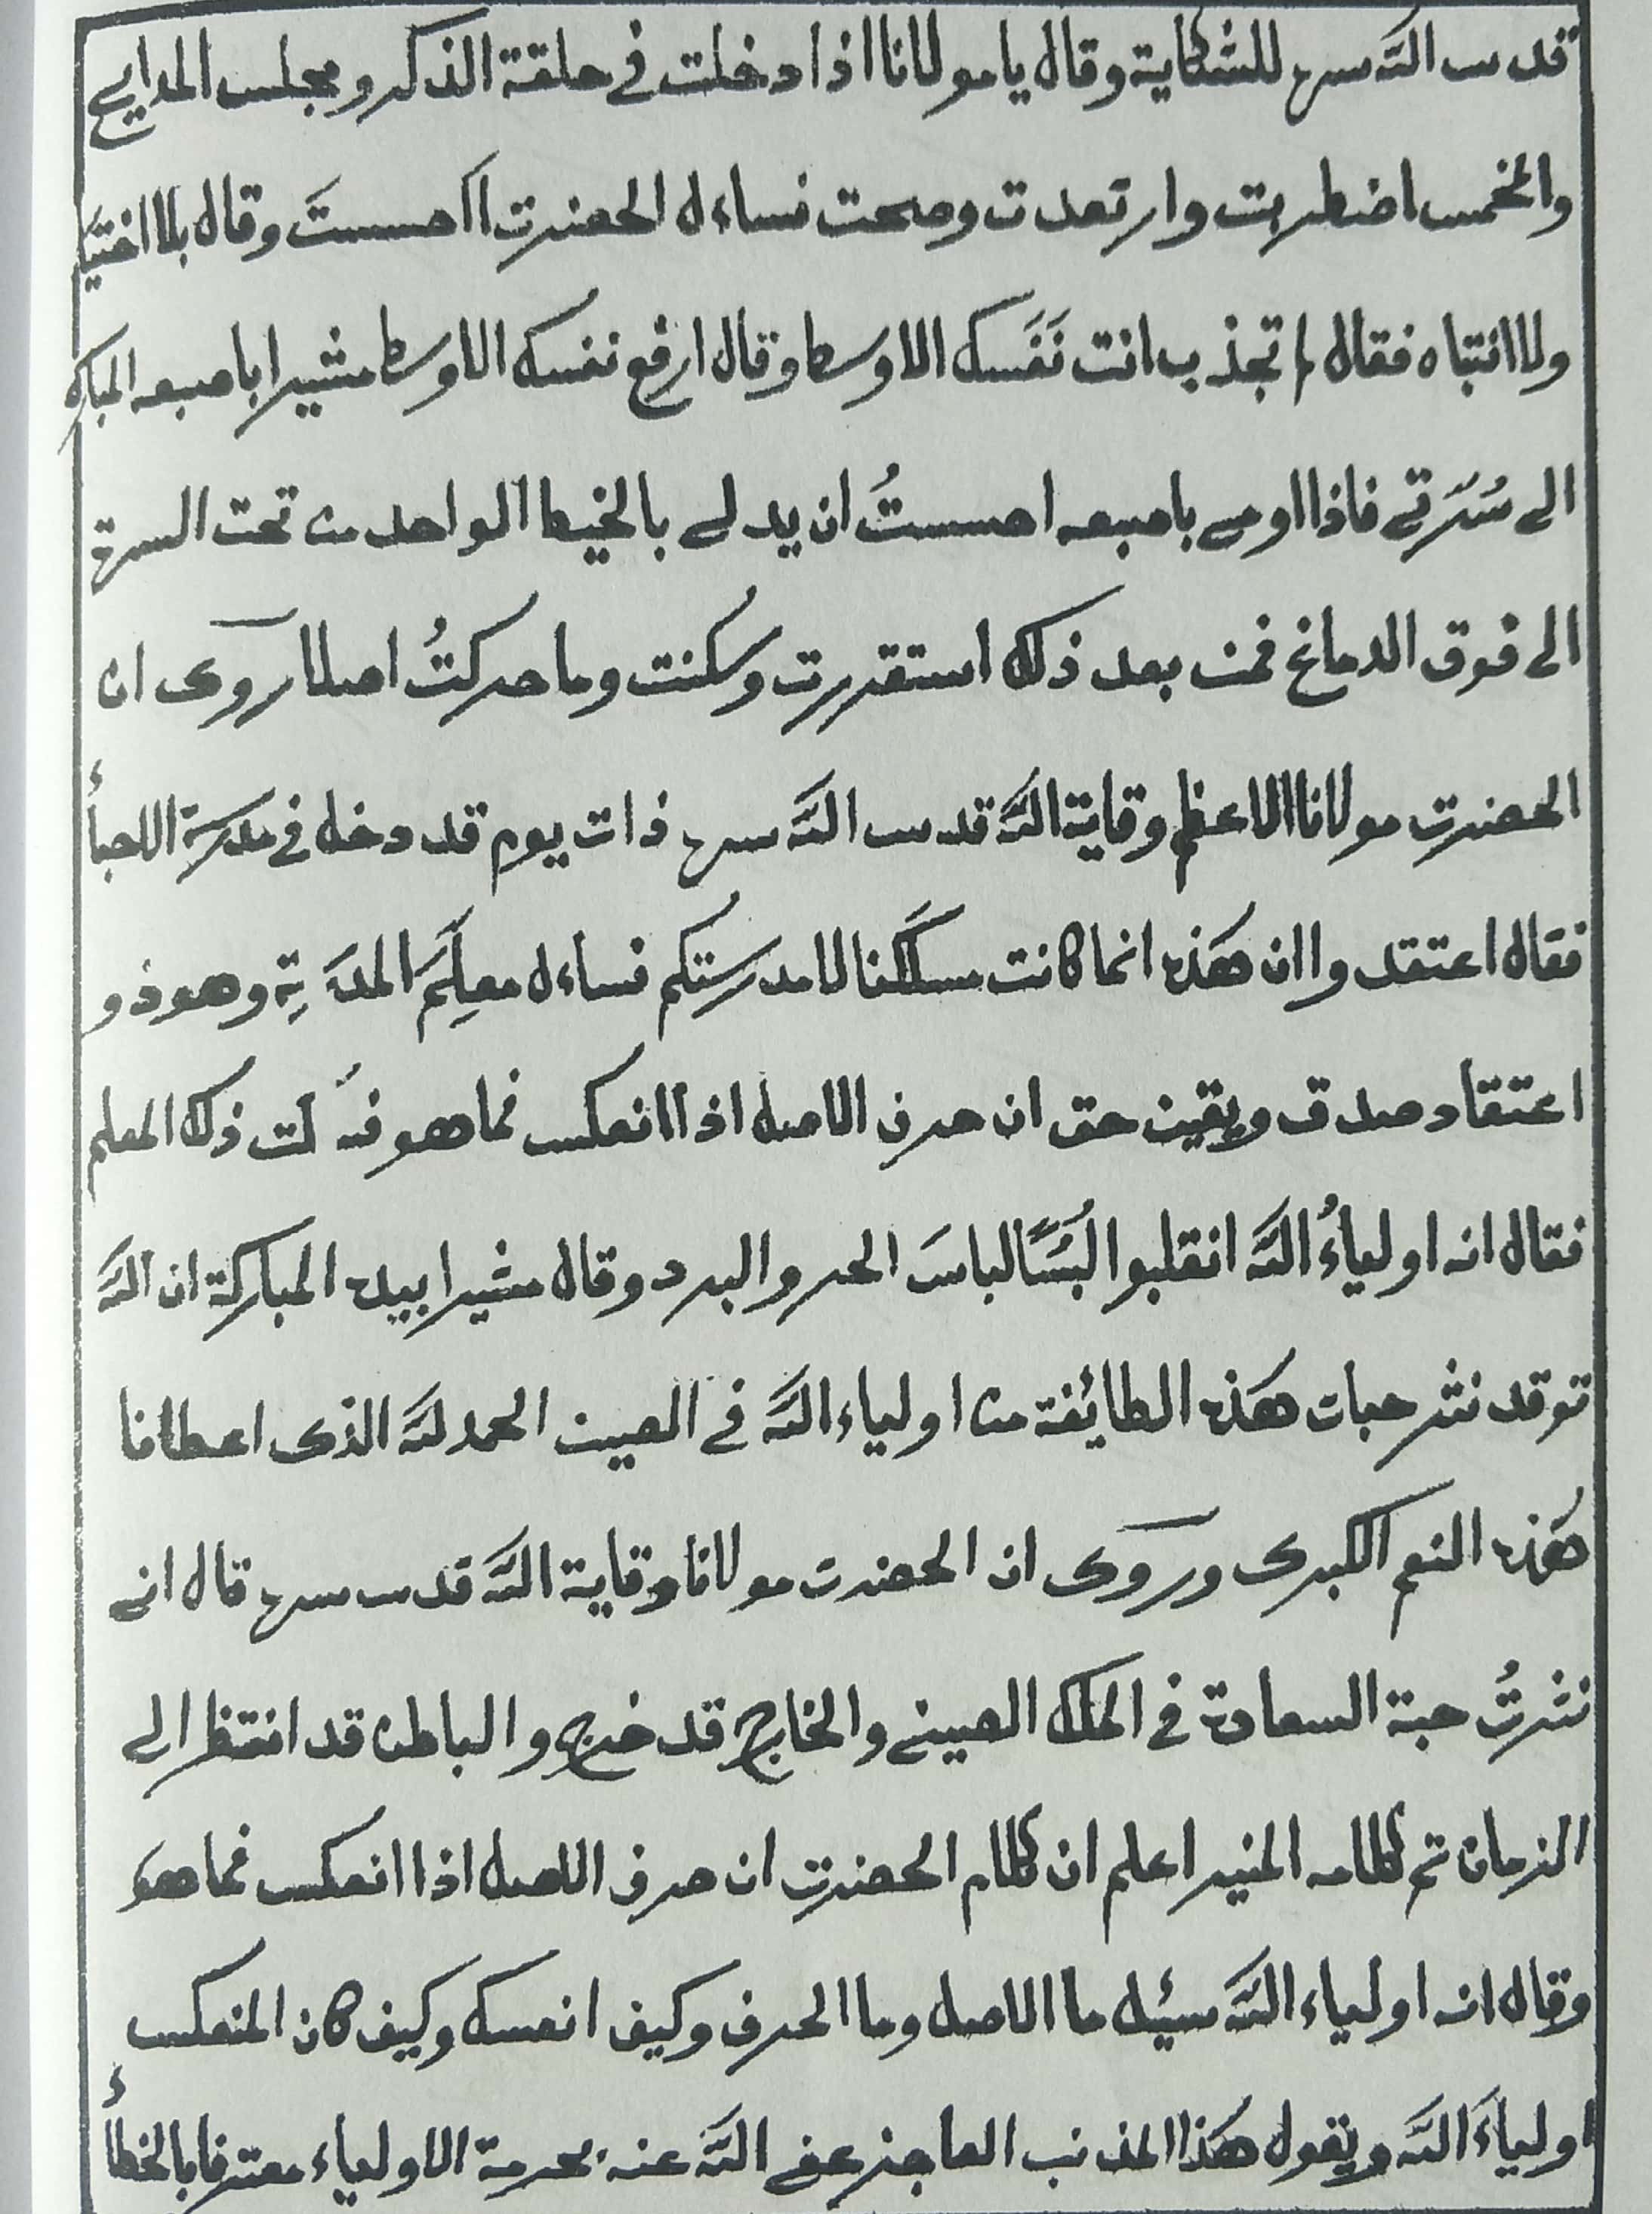 قدس اللّه سره للشكاية وقال يا مولانا اذا دخلت في حلقة الذكر ومجلس المدايح
والمخمس اضطربت وارتعدت وصحت فساءل الحضرت ااحسستَ وقال بلا اختيا
ولا انتباه فقال تجذب انت نَفَسك الاوسط وقال ارفع نفسك الاوسط مشيرا باصبعه المباركة
الى سُرّتي فاذا اومى باصبعه احسستُ ان يدلى بالخيط الواحد من تحت السرة
الى فوق الدماغ فمن بعد ذلك استقررت وسكنت وما حركتُ اصلا روى ان
الحضرت مولانا الاعظم وقاية اللّه قدس اللّه سره ذات يوم قد دخل في مدرسة الاحبأ
فقال اعتقدوا ان هَذه انما كانت مسكَنَنا لا مدرستكم فساءل معلِّمَ المدَ يِة وهو ذو
اعتقاد صدق ويقين حق ان حرف الاصل اذا انعكس فما هو ذلك المعلم
فقال انه اولياءُ اللّه انقلبوا لُبَّسًا لباسَ الحر والبرد وقال مشيرا بيده المباركة ان اللّه
تو قد نثر حبات هَذه الطائفة من اولياء اللّه في الصين الحمد للّه الذى اعطانا
هَذه النعم الكبرى وروى ان الحضرت مولانا وقاية اللّه قدس سره قال انى
نثرتُ حبة السعادة في الملك الصيني والخارج قد خرج والباطن قد انتظر الى
الزمان تم كلامه المنير اعلم ان كلام الحضرت ان حرف الاصل اذا انعكس فما هو
وقال انه اولياء اللّه سيئل ما الاصل وما الحرف وكيف انعسك وكيف كان المنعكس
اولياءَ اللّه ويقول هَذا المذنب العاجز عفى اللّه عنه بحرمة الاولياء معترفا بالخطأ